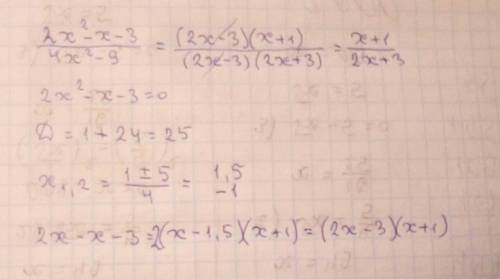 (2x²-x-3)/(4x²-9) = ((2x-3)(x+1))/((2x-3)(2x+3)) = (x+1)/(2x+3)
2x²-x-3=0
D = 1+24=25
x₁,₂ = (1±5)/4 = 1,5
-1
2x-x-3=2(x-1,5)(x+1)=(2x-3)(x+1)